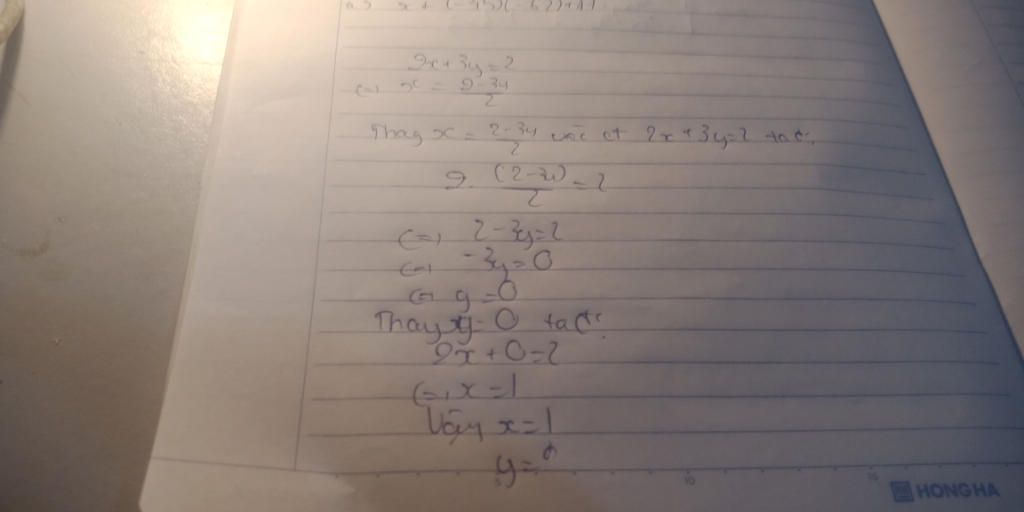 2x+3y=2
(=) x = \frac{2-3y}{2}
Thay x = \frac{2-3y}{2} vào ct 2x+3y=2 ta đc:
2. \frac{(2-3y)}{2} = 2
(=) 2-3y=2
(=) -3y=0
(=) y=0
Thay y=0 ta đc:
2x+0=2
(=) x=1
Vậy x=1
y=0
10
15
HONG HA